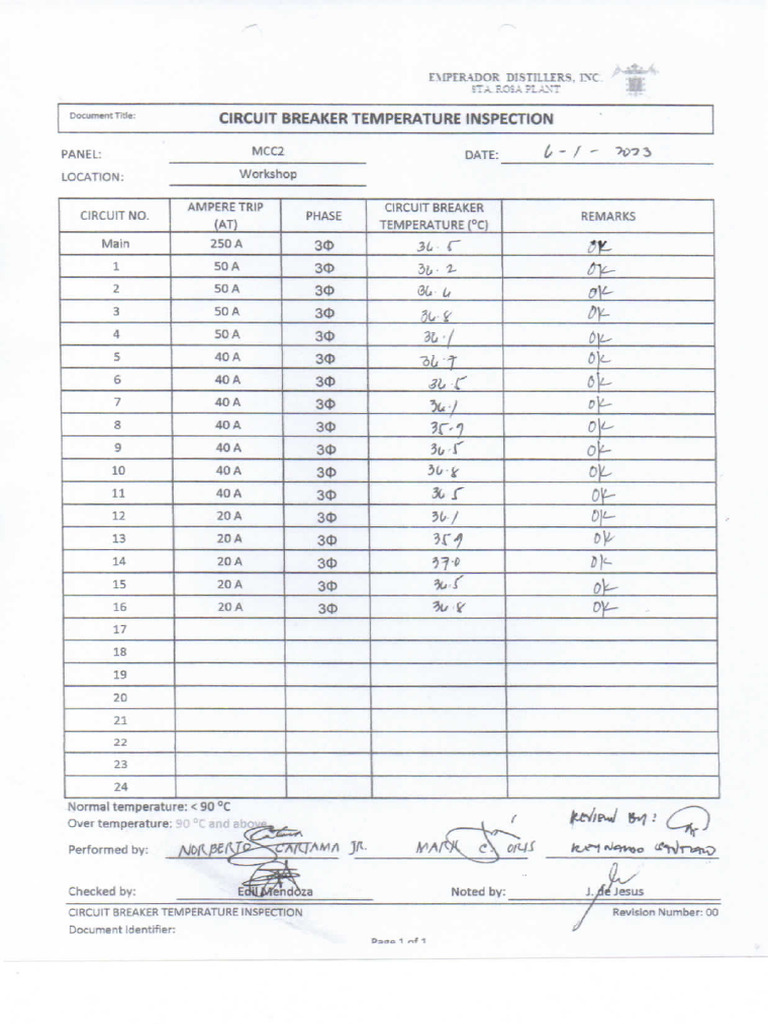 EMPERADOR DISTILLERS, INC.
STA. ROSA PLANT
Document Title: CIRCUIT BREAKER TEMPERATURE INSPECTION
PANEL: MCC2 DATE: 6-1-2023
LOCATION: Workshop
CIRCUIT NO. AMPERE TRIP (AT) PHASE CIRCUIT BREAKER TEMPERATURE (°C) REMARKS
Main 250 A 3Φ 36.5 OK
1 50 A 3Φ 36.2 OK
2 50 A 3Φ 36.6 OK
3 50 A 3Φ 36.8 OK
4 50 A 3Φ 36.1 OK
5 40 A 3Φ 36.9 OK
6 40 A 3Φ 36.5 OK
7 40 A 3Φ 36.1 OK
8 40 A 3Φ 35.9 OK
9 40 A 3Φ 36.5 OK
10 40 A 3Φ 36.8 OK
11 40 A 3Φ 36.5 OK
12 20 A 3Φ 36.1 OK
13 20 A 3Φ 35.9 OK
14 20 A 3Φ 37.0 OK
15 20 A 3Φ 36.5 OK
16 20 A 3Φ 36.8 OK
17
18
19
20
21
22
23
24
Normal temperature: < 90 °C
Over temperature: 90 °C and above REVIEW BY:
Performed by: NORBERTO CARTAMA JR. MARK C. REYNANDO
Checked by: Edil Mendoza Noted by: J. de Jesus
CIRCUIT BREAKER TEMPERATURE INSPECTION Revision Number: 00
Document Identifier:
Page 1 of 1